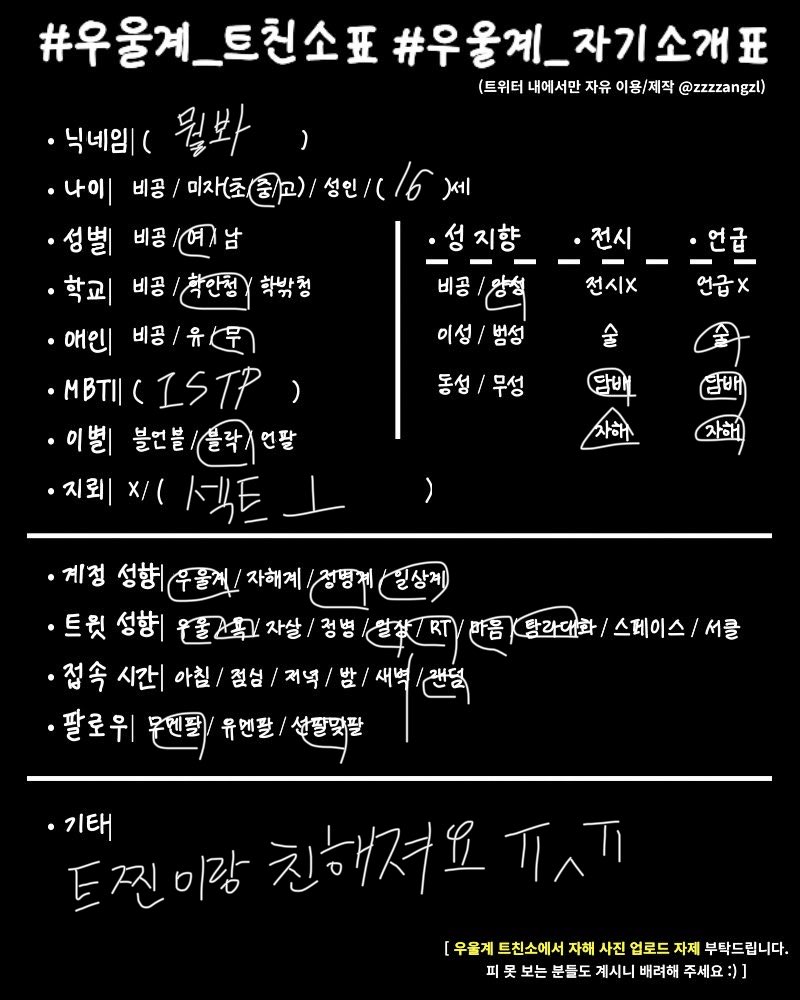 #우울계_트친소표 #우울계_자기소개표
(트위터 내에서만 자유 이용/제작 @zzzzangzl)
• 닉네임| ( 뭘봐 )
• 나이| 비공 / 미자(초/중/고) / 성인 / ( 16 )세
• 성별| 비공 / 여 / 남
• 학교| 비공 / 학안청 / 학밖청
• 애인| 비공 / 유 / 무
• MBTI| ( ISTP )
• 이별| 블언블 / 블락 / 언팔
• 지뢰| X/ ( 섹트 ㅗ )
• 성 지향 • 전시 • 언급
비공 / 양성 전시X 언급X
이성 / 범성 술 술
동성 / 무성 담배 담배
자해 자해
• 계정 성향| 우울계 / 자해계 / 정병계 / 일상계
• 트윗 성향| 우울 / 욕 / 자살 / 정병 / 일상 / RT / 마음 / 탐라대화 / 스페이스 / 서클
• 접속 시간| 아침 / 점심 / 저녁 / 밤 / 새벽 / 랜덤
• 팔로우| 무멘팔 / 유멘팔 / 선팔맞팔
• 기타|
트찐이랑 친해져요 ㅠㅅㅠ
[ 우울계 트친소에서 자해 사진 업로드 자제 부탁드립니다.
피 못 보는 분들도 계시니 배려해 주세요 :) ]